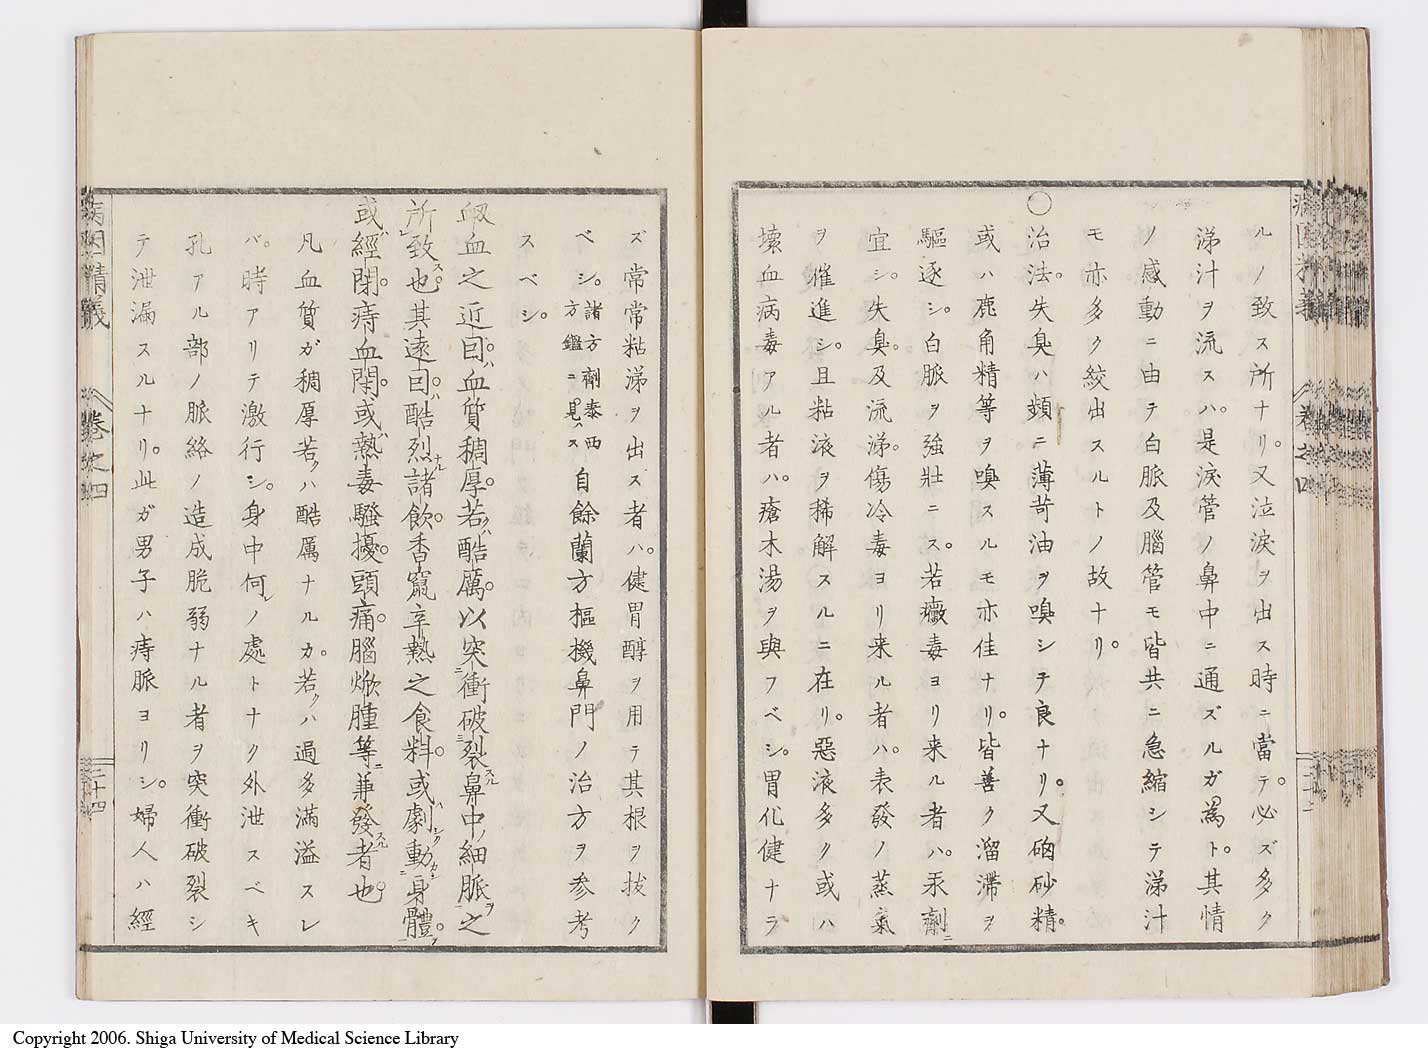 ルノ致ス所ナリ。又泣涙ヲ出ス時ニ當テ。必ズ多ク
涕汁ヲ流スハ。是涙管ノ鼻中ニ通ズルガ爲ト。其情
ノ感動ニ由テ白脈及腦管モ皆共ニ急縮シテ涕汁
モ亦多ク絞出スルトノ故ナリ。
〇治法。失臭ハ頻ニ薄苛油ヲ嗅シテ良ナリ。又硇砂精。
或ハ鹿角精等ヲ嗅スルモ亦佳ナリ。皆善ク溜滞ヲ
驅逐シ。白脈ヲ強壯ニス。若黴毒ヨリ来ル者ハ。汞劑ニ
宜シ。失臭。及流涕。傷冷毒ヨリ来ル者ハ。表發ノ蒸氣
ヲ催進シ。且粘液ヲ稀解スルニ在リ。惡液多ク或ハ
壊血病毒アル者ハ。瘡木湯ヲ與フベシ。胃化健ナラ
ズ常常粘涕ヲ出ス者ハ。健胃醇ヲ用テ其根ヲ拔ク
ベシ。諸方劑泰西方鑑ニ見ス自餘蘭方樞機鼻門ノ治方ヲ参考
スベシ。
衂血之近因ハ血質稠厚。若クハ酷厲。以突衝破裂スル鼻中ノ細脈ヲ之
所致也。其遠因ハ酷烈ナル諸飲。香竄辛熱之食料。或ハ劇シク動カシ身體ヲ。
或經閉。痔血閉。或熱毒騒擾。頭痛。腦焮腫等ニ兼發スル者也
凡血質ガ稠厚若クハ酷厲ナルカ。若クハ過多滿溢スレ
バ。時アリテ激行シ。身中何レノ處トナク外泄スベキ
孔アル部ノ脈絡ノ造成脆弱ナル者ヲ突衝破裂シ
テ泄漏スルナリ。此ガ男子ハ痔脈ヨリシ。婦人ハ經
病因精義
巻之四
三十四
Copyright 2006. Shiga University of Medical Science Library